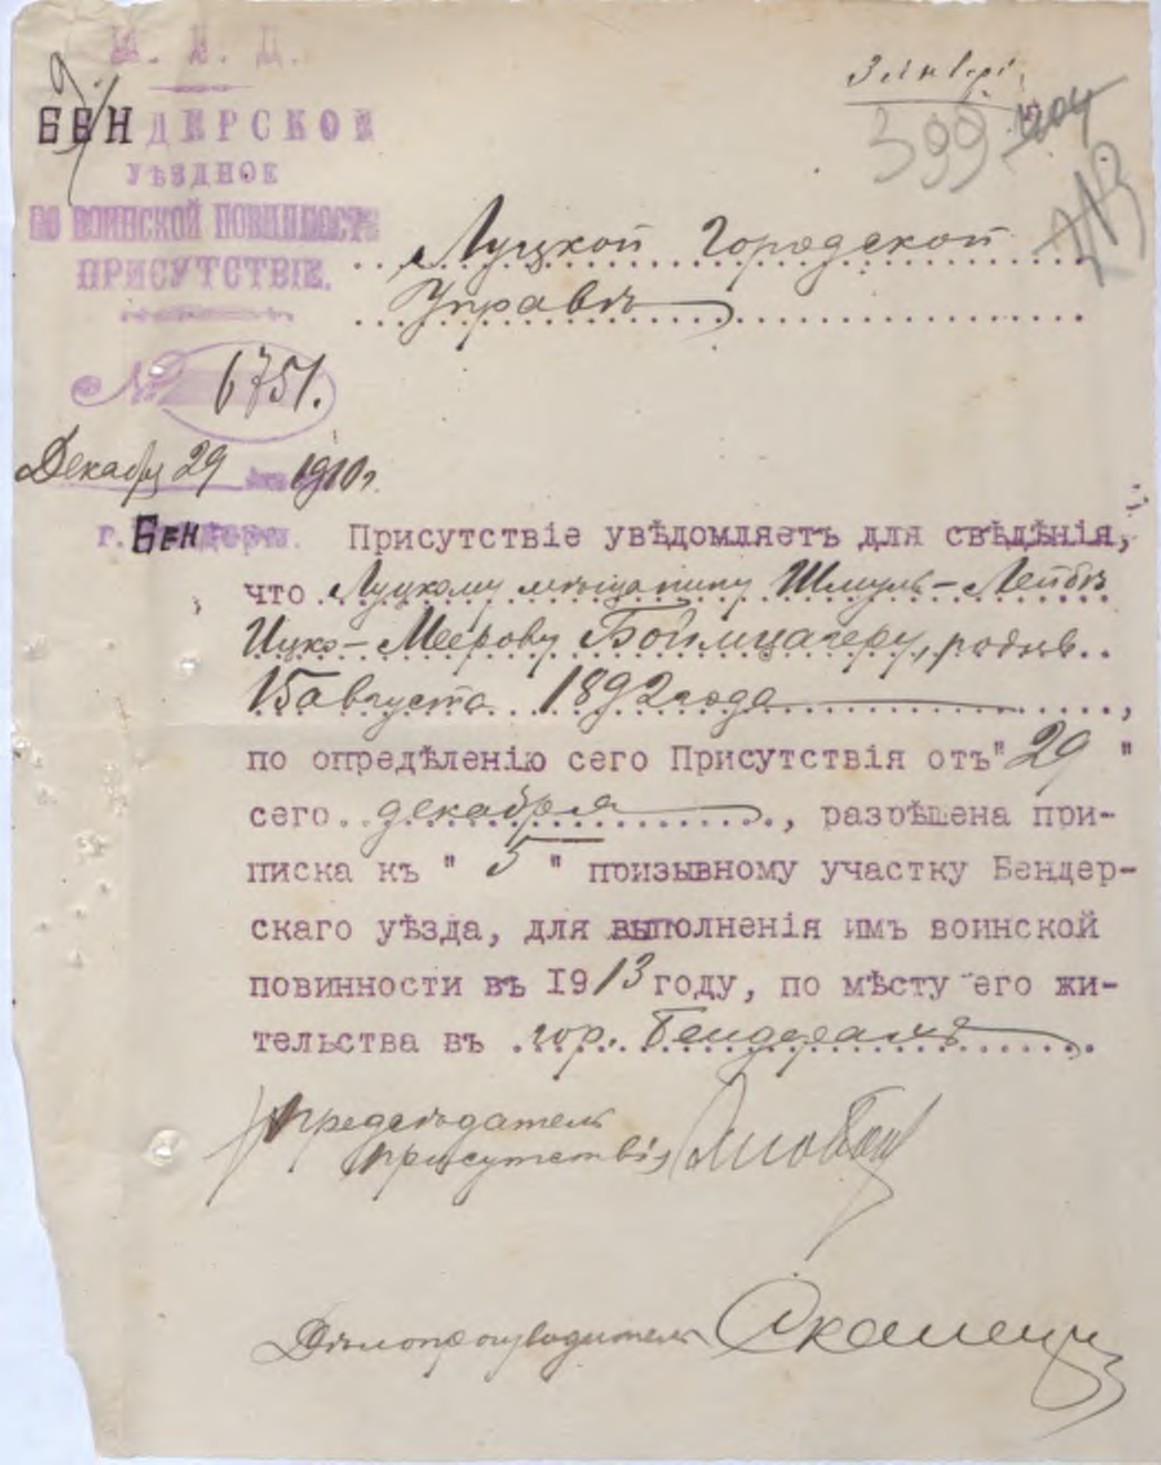 М. В. Д.
БЕНДЕРСКОЕ
УѢЗДНОЕ
ПО ВОИНСКОЙ ПОВИННОСТИ
ПРИСУТСТВІЕ.
3 января
399
Луцкой Городской
Управѣ
№ 6751.
Декабря 29 дня 1910 г.
г. БЕНдеры. Присутствіе увѣдомляетъ для свѣдѣнія,
что Луцкому мѣщанину Шмуль-Лейбѣ
Ицко-Меерову Боймцагеру, роднв.
15 августа 1892 года,
по опредѣленію сего Присутствія отъ "29"
сего декабря, разрѣшена при-
писка къ "5" призывному участку Бендер-
скаго уѣзда, для выполненія имъ воинской
повинности въ 1913 году, по мѣсту его жи-
тельства въ гор. Бендерахъ.
Предсѣдатель
Присутствія
Дѣлопроизводитель